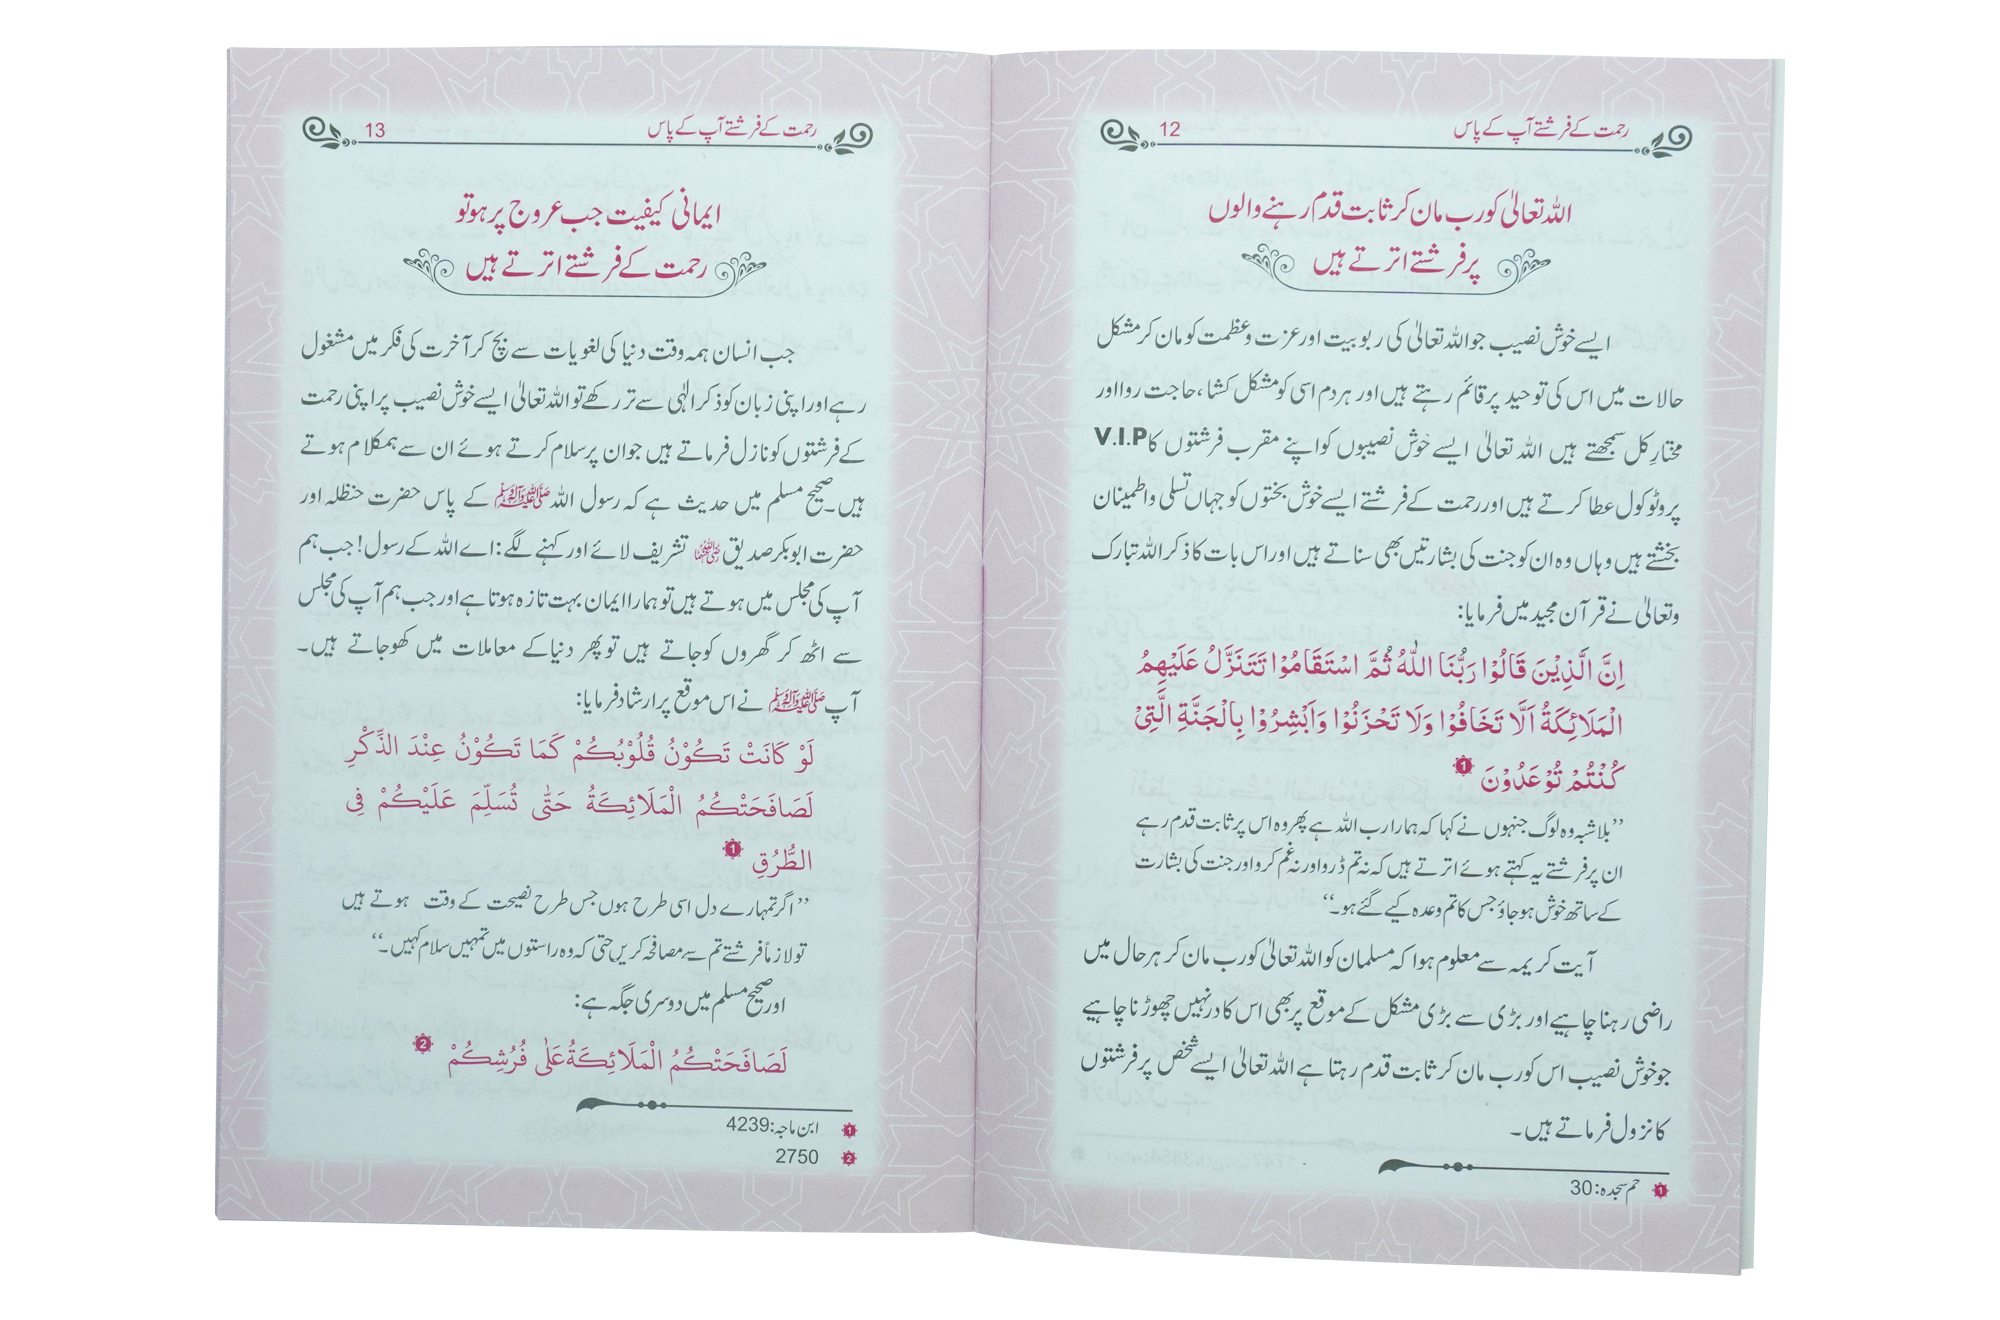 رحمت کے فرشتے آپ کے پاس 12
اللہ تعالیٰ کو رب مان کر ثابت قدم رہنے والوں
پر فرشتے اترتے ہیں
ایسے خوش نصیب جو اللہ تعالیٰ کی ربوبیت اور عزت و عظمت کو مان کر مشکل
حالات میں اس کی توحید پر قائم رہتے ہیں اور ہر دم اسی کو مشکل کشا، حاجت روا اور
مختارِ کل سمجھتے ہیں اللہ تعالیٰ ایسے خوش نصیبوں کو اپنے مقرب فرشتوں کا V.I.P
پروٹوکول عطا کرتے ہیں اور رحمت کے فرشتے ایسے خوش بختوں کو جہاں تسلی و اطمینان
بخشتے ہیں وہاں وہ ان کو جنت کی بشارتیں بھی سناتے ہیں اور اس بات کا ذکر اللہ تبارک
وتعالیٰ نے قرآن مجید میں فرمایا:
اِنَّ الَّذِيْنَ قَالُوْا رَبُّنَا اللّٰهُ ثُمَّ اسْتَقَامُوْا تَتَنَزَّلُ عَلَيْهِمُ
الْمَلَائِكَةُ اَلَّا تَخَافُوْا وَلَا تَحْزَنُوْا وَاَبْشِرُوْا بِالْجَنَّةِ الَّتِيْ
كُنْتُمْ تُوْعَدُوْنَ 1
’’بلاشبہ وہ لوگ جنہوں نے کہا کہ ہمارا رب اللہ ہے پھر وہ اس پر ثابت قدم رہے
ان پر فرشتے یہ کہتے ہوئے اترتے ہیں کہ نہ تم ڈرو اور نہ غم کرو اور جنت کی بشارت
کے ساتھ خوش ہو جاؤ جس کا تم وعدہ کیے گئے ہو۔‘‘
آیت کریمہ سے معلوم ہوا کہ مسلمان کو اللہ تعالیٰ کو رب مان کر ہر حال میں
راضی رہنا چاہیے اور بڑی سے بڑی مشکل کے موقع پر بھی اس کا در نہیں چھوڑنا چاہیے
جو خوش نصیب اس کو رب مان کر ثابت قدم رہتا ہے اللہ تعالیٰ ایسے شخص پر فرشتوں
کا نزول فرماتے ہیں۔
1 حم سجدہ: 30
رحمت کے فرشتے آپ کے پاس 13
ایمانی کیفیت جب عروج پر ہو تو
رحمت کے فرشتے اترتے ہیں
جب انسان ہمہ وقت دنیا کی لغویات سے بچ کر آخرت کی فکر میں مشغول
رہے اور اپنی زبان کو ذکر الٰہی سے تر رکھے تو اللہ تعالیٰ ایسے خوش نصیب پر اپنی رحمت
کے فرشتوں کو نازل فرماتے ہیں جو ان پر سلام کرتے ہوئے ان سے ہمکلام ہوتے
ہیں۔ صحیح مسلم میں حدیث ہے کہ رسول اللہ صلی اللہ علیہ وآلہ وسلم کے پاس حضرت حنظلہ اور
حضرت ابوبکر صدیق رضی اللہ عنہما تشریف لائے اور کہنے لگے: اے اللہ کے رسول! جب ہم
آپ کی مجلس میں ہوتے ہیں تو ہمارا ایمان بہت تازہ ہوتا ہے اور جب ہم آپ کی مجلس
سے اٹھ کر گھروں کو جاتے ہیں تو پھر دنیا کے معاملات میں کھو جاتے ہیں۔
آپ صلی اللہ علیہ وآلہ وسلم نے اس موقع پر ارشاد فرمایا:
لَوْ كَانَتْ تَكُوْنُ قُلُوْبُكُمْ كَمَا تَكُوْنُ عِنْدَ الذِّكْرِ
لَصَافَحَتْكُمُ الْمَلَائِكَةُ حَتّٰى تُسَلِّمَ عَلَيْكُمْ فِي
الطُّرُقِ 1
’’اگر تمہارے دل اسی طرح ہوں جس طرح نصیحت کے وقت ہوتے ہیں
تو لازماً فرشتے تم سے مصافحہ کریں حتی کہ وہ راستوں میں تمہیں سلام کہیں۔‘‘
اور صحیح مسلم میں دوسری جگہ ہے:
لَصَافَحَتْكُمُ الْمَلَائِكَةُ عَلٰى فُرُشِكُمْ 2
1 ابن ماجہ: 4239
2 2750